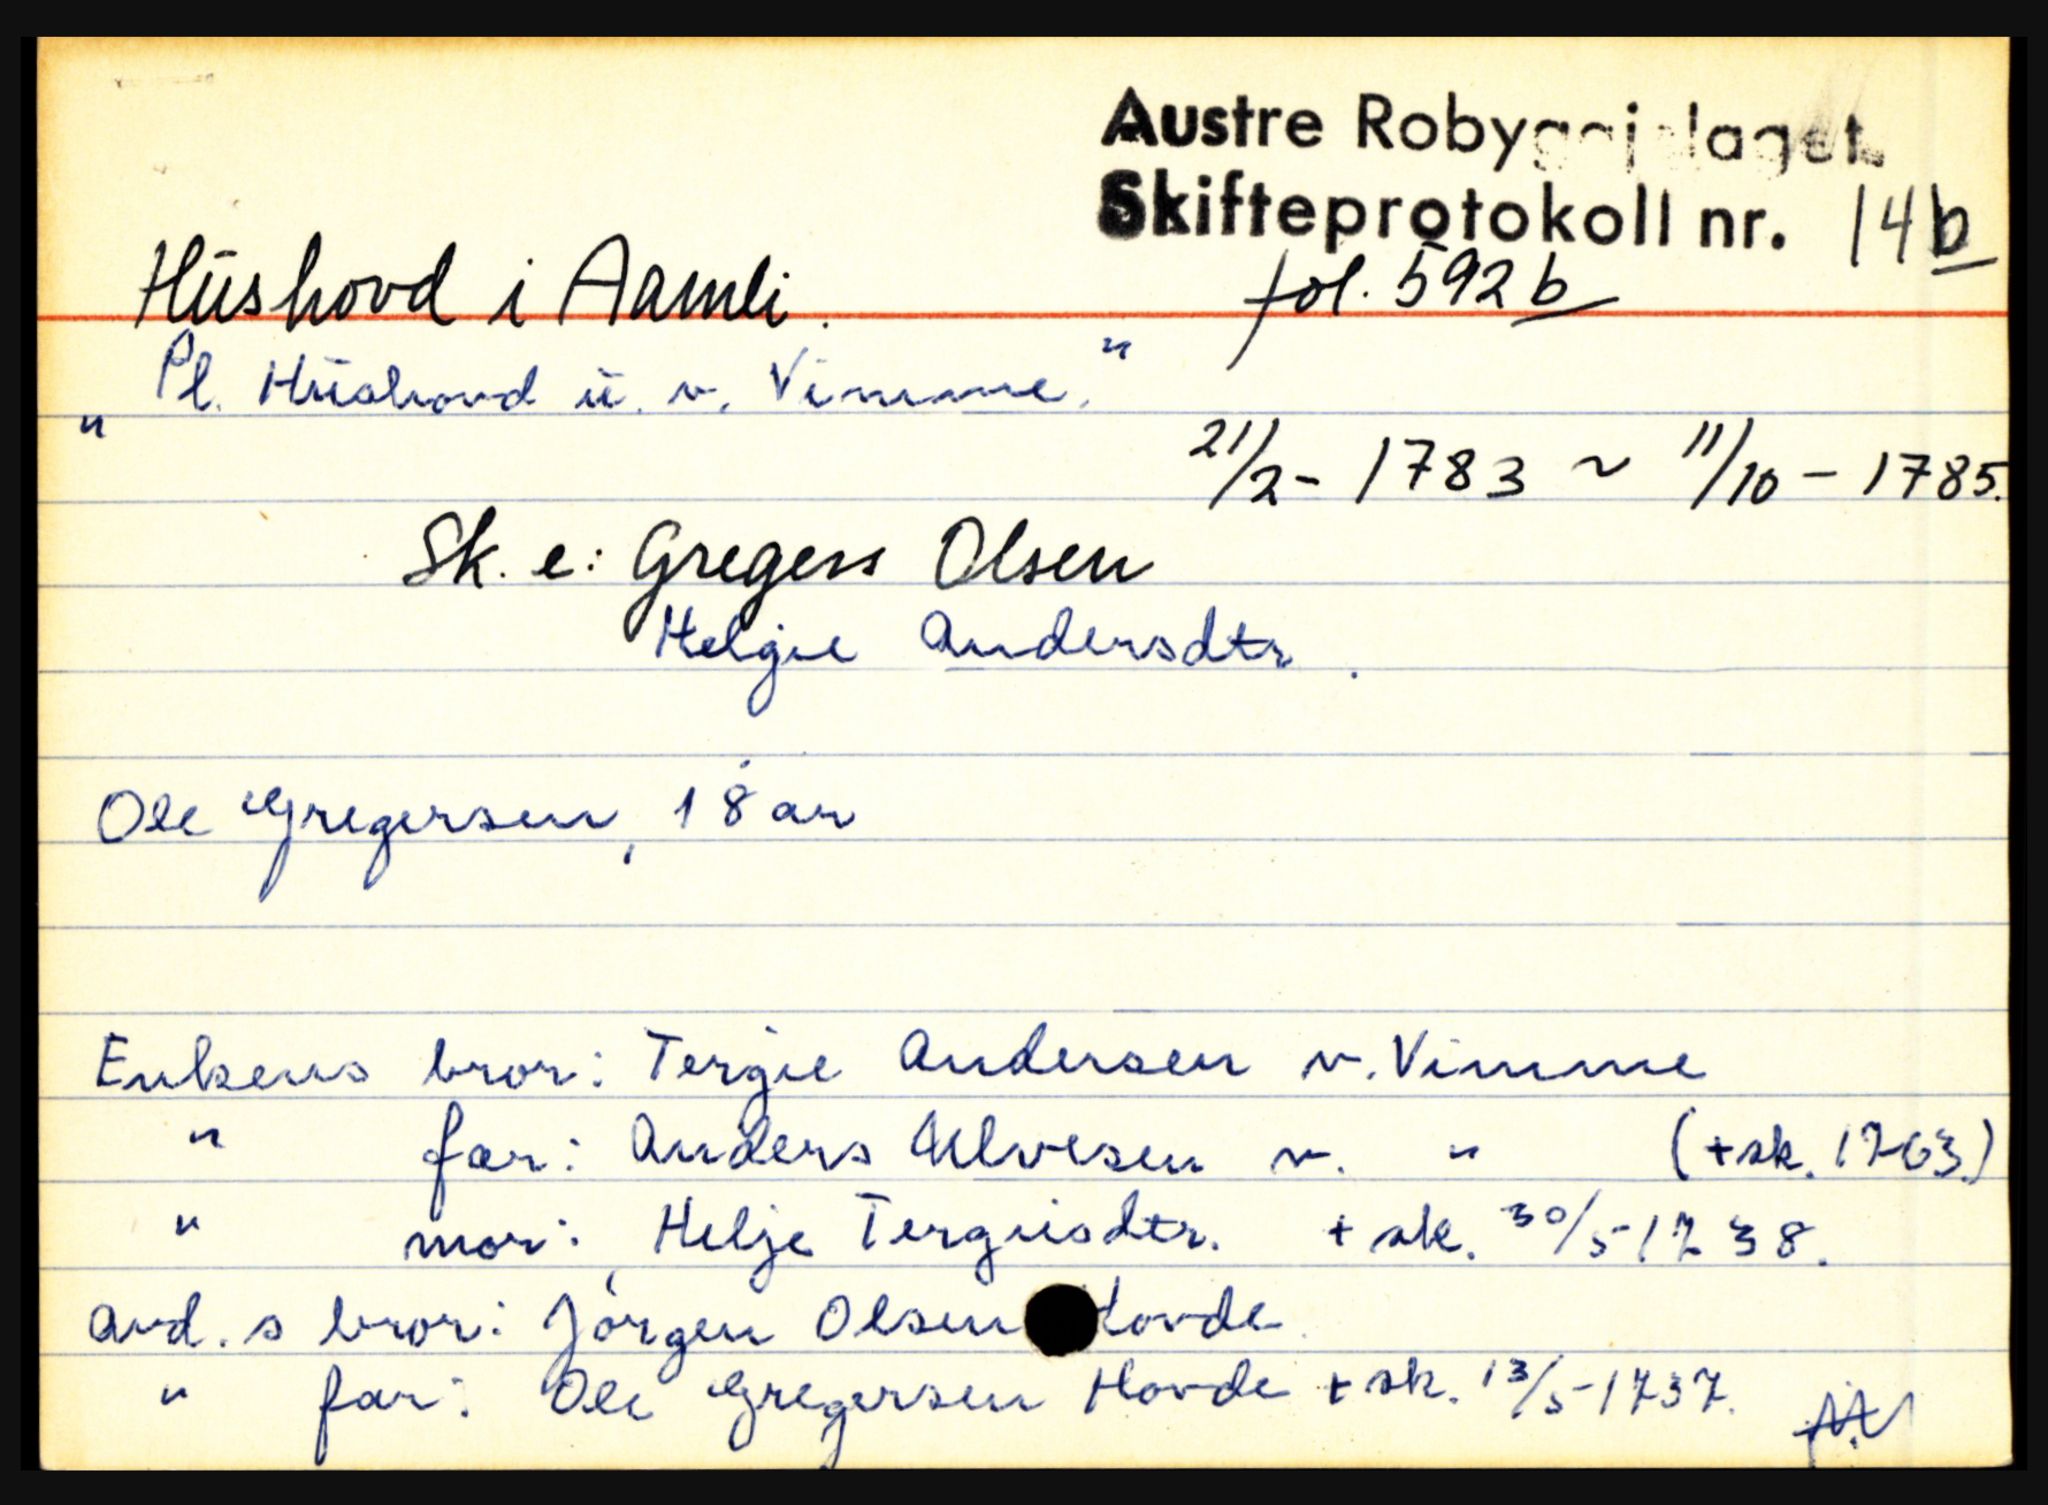 Austre Robyggjelaget.
Skifteprotokoll nr. 14b
Hŭshovd i Aamli.
fol. 592b
"Pl. Hŭshovd ŭ. v. Vimme."
21/2 - 1783 ~ 11/10 - 1785.
Sk. e: Gregers Olsen
Helgie Andersdtr.
Ole Gregersen, 18 år
Enkens bror: Tergie Andersen v. Vimme
" far: Anders Ulvesen v. " (+ sk. 1763)
" mor: Helje Tergiisdtr. + sk. 30/5-1738.
Avd. s bror: Jörgen Olsen Hovde.
" far: Ole Gregersen Hovde + sk. 13/5-1737.